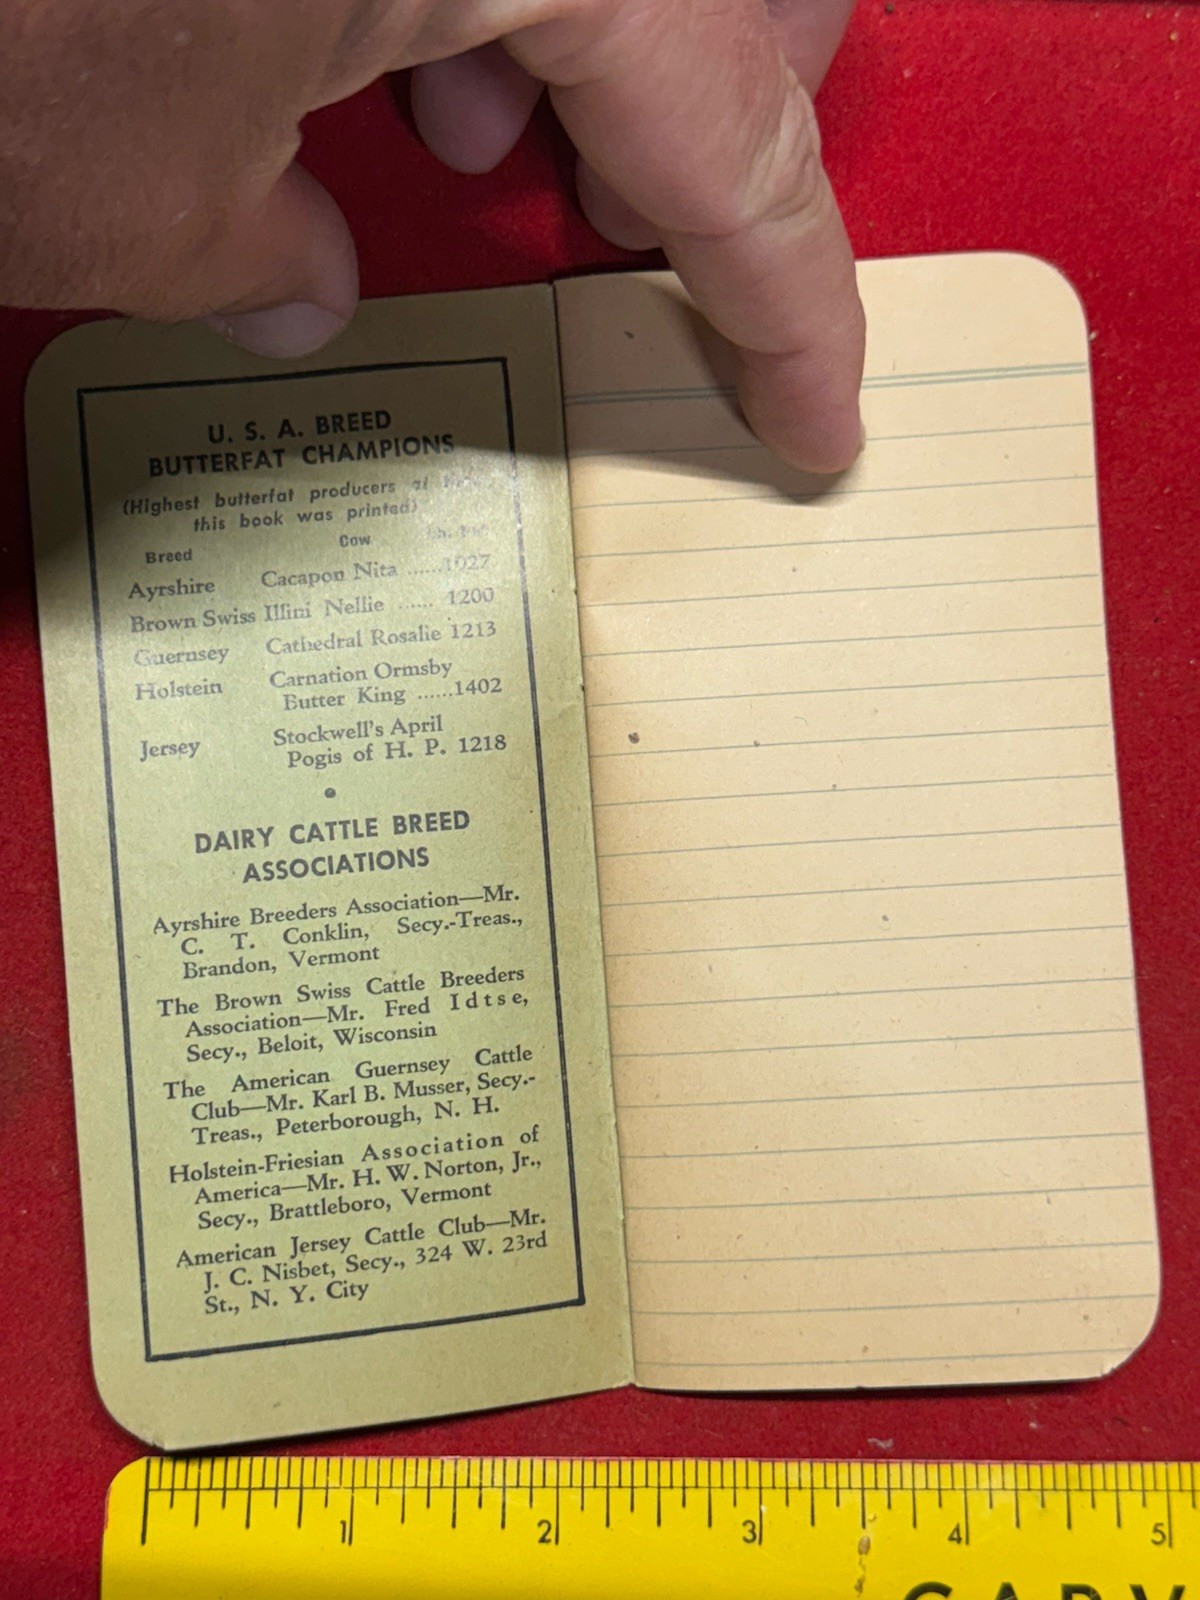 U. S. A. BREED
BUTTERFAT CHAMPIONS
(Highest butterfat producers at
this book was printed)
Breed Cow
Ayrshire Cacapon Nita ......1027
Brown Swiss Illini Nellie ...... 1200
Guernsey Cathedral Rosalie 1213
Holstein Carnation Ormsby
Butter King ......1402
Jersey Stockwell's April
Pogis of H. P. 1218
DAIRY CATTLE BREED
ASSOCIATIONS
Ayrshire Breeders Association—Mr.
C. T. Conklin, Secy.-Treas.,
Brandon, Vermont
The Brown Swiss Cattle Breeders
Association—Mr. Fred Idtse,
Secy., Beloit, Wisconsin
The American Guernsey Cattle
Club—Mr. Karl B. Musser, Secy.-
Treas., Peterborough, N. H.
Holstein-Friesian Association of
America—Mr. H. W. Norton, Jr.,
Secy., Brattleboro, Vermont
American Jersey Cattle Club—Mr.
J. C. Nisbet, Secy., 324 W. 23rd
St., N. Y. City
1 2 3 4 5